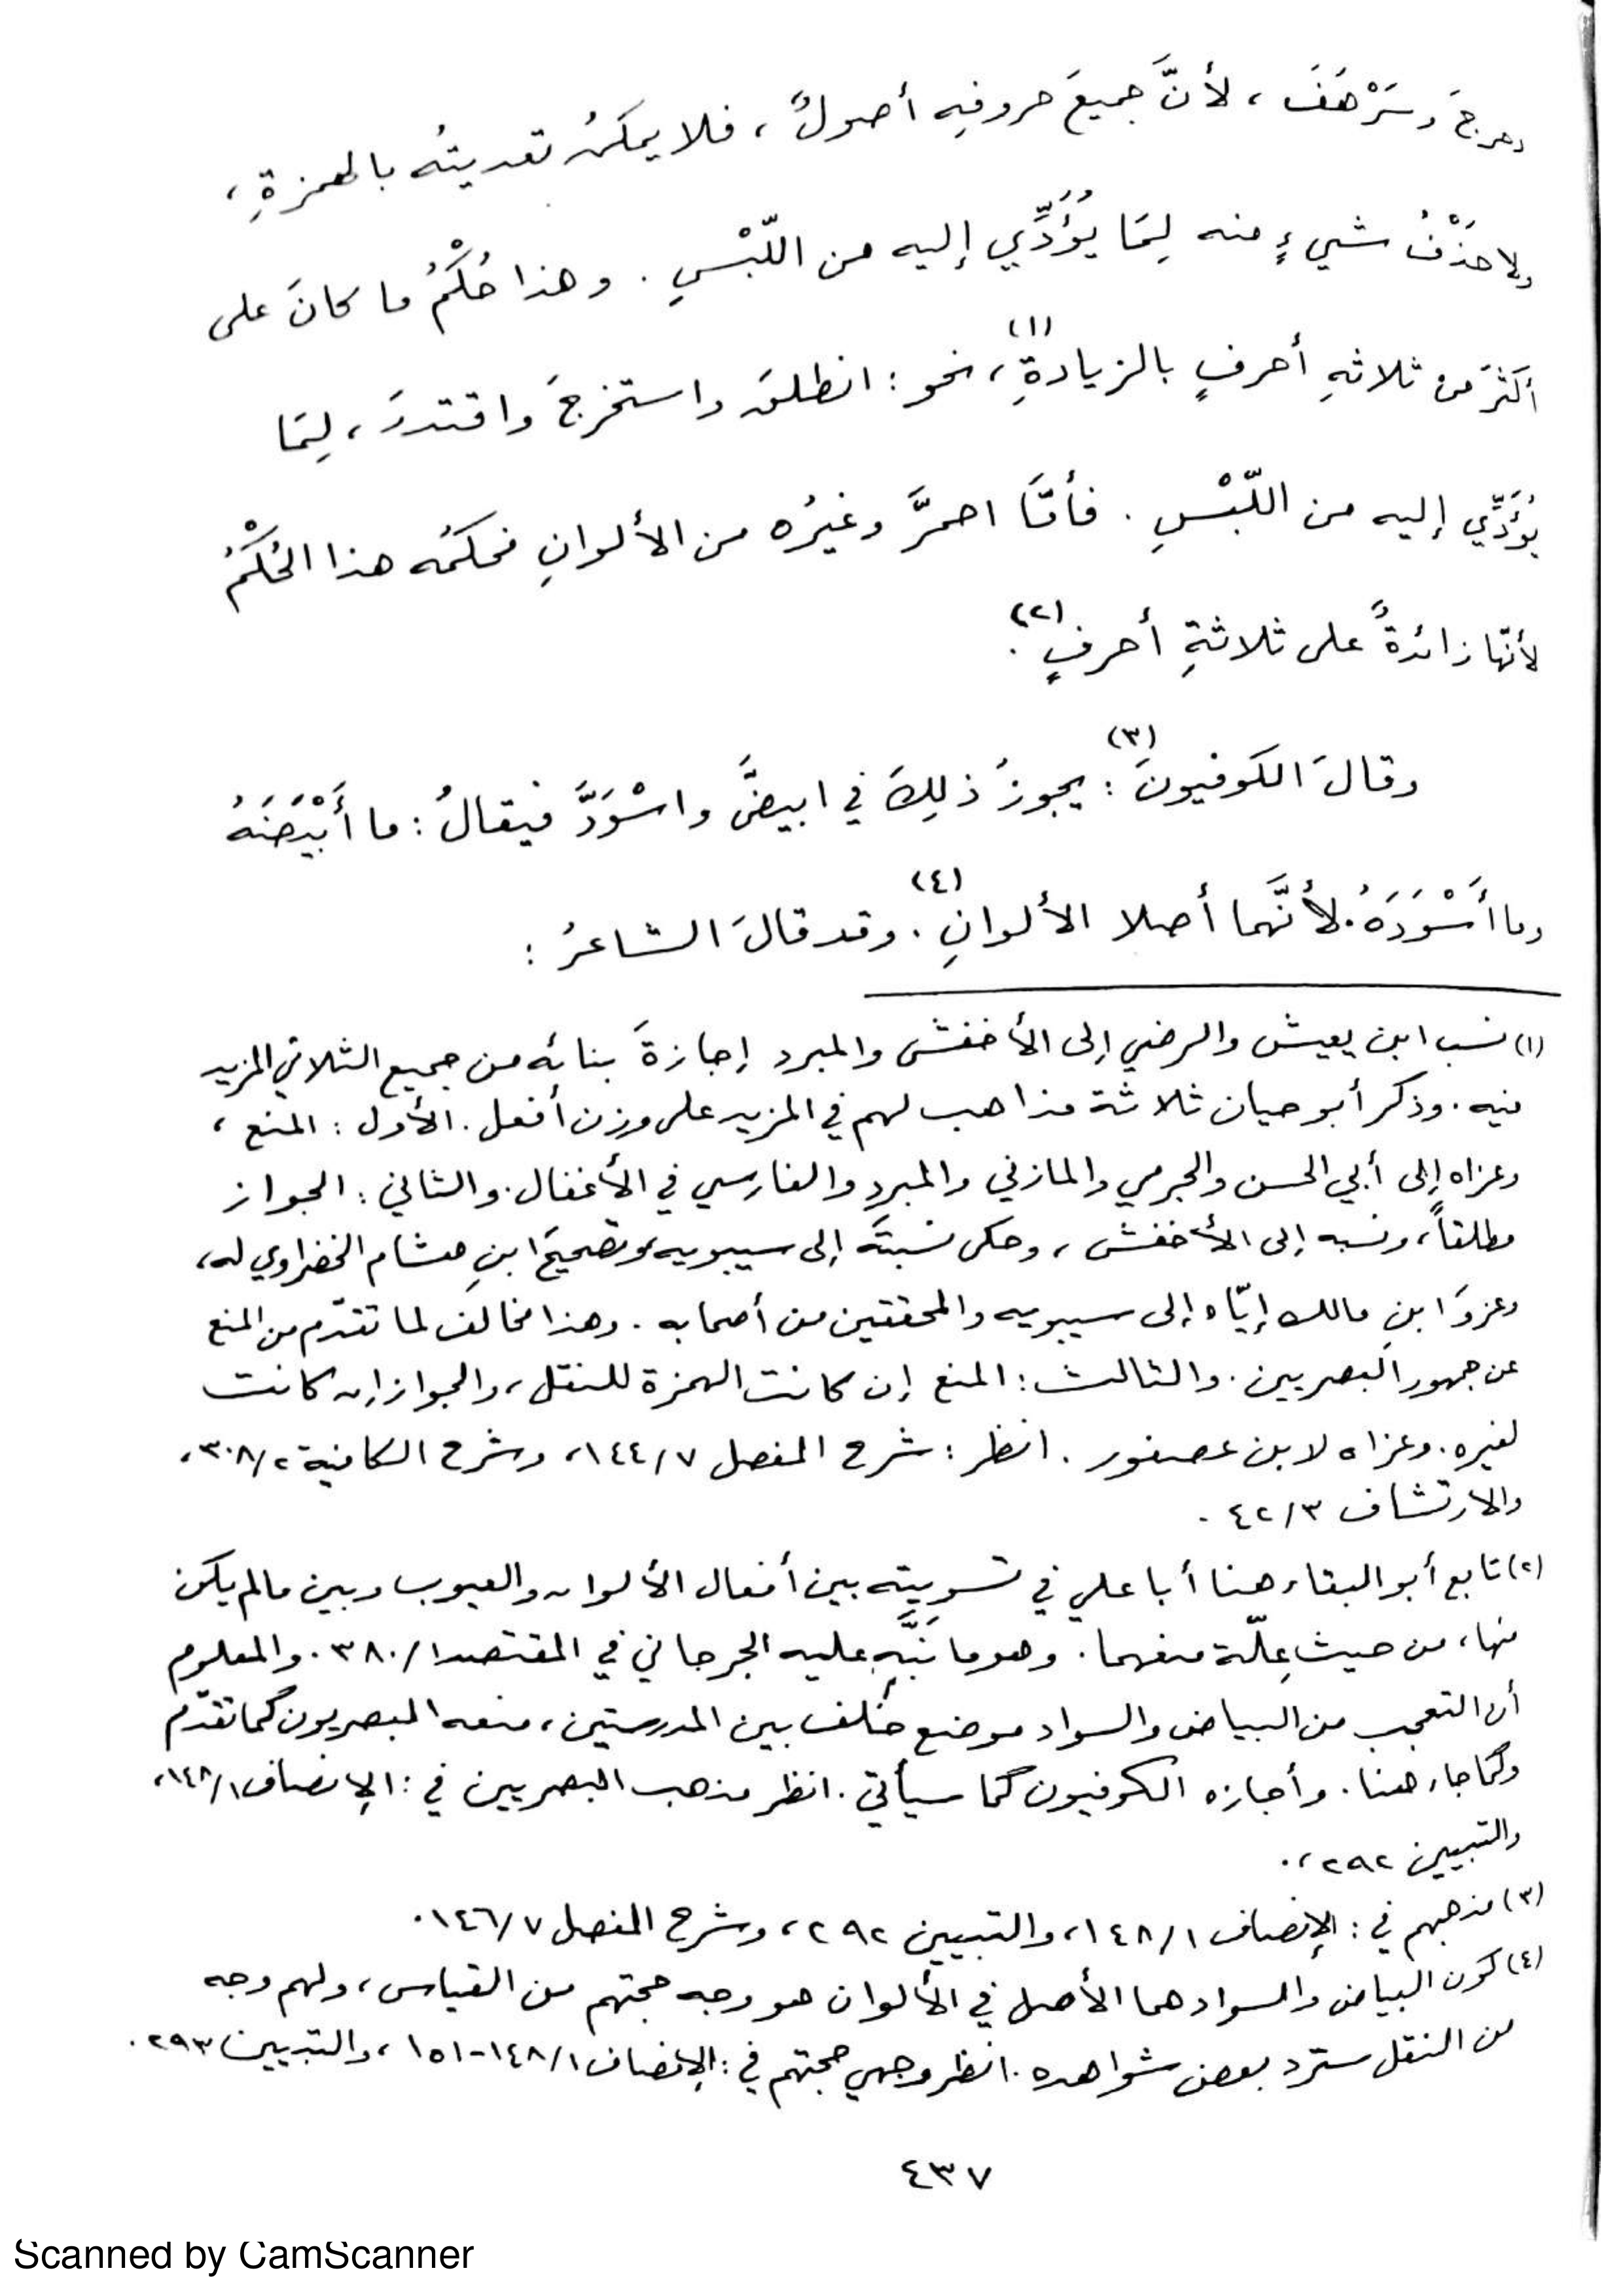 دحرجَ وسَرْهَفَ ، لأنَّ جميعَ حروفِه أصولٌ ، فلا يمكنُ تعديتُه بالهمزةِ ،
ولا حذْفُ شيءٍ منه لِمَا يُؤَدِّي إليه من اللّبْسِ . وهذا حُكْمُ ما كانَ على
أكثرَ من ثلاثةِ أحرفٍ بالزيادةِ(١) ، نحو : انطلقَ واستخرجَ واقتدرَ ، لِمَا
يُؤَدِّي إليه من اللّبْسِ . فأمَّا احمرَّ وغيرُه من الألوانِ فحكمُه هذا الحُكْمُ
لأنّها زائدةٌ على ثلاثةِ أحرفٍ(٢) .
وقالَ الكوفيونَ(٣) : يجوزُ ذلِكَ في ابيضَّ واسْوَدَّ فيقالُ : ما أَبْيَضَهُ
وما أَسْوَدَهُ . لأنَّهما أصلا الألوانِ(٤) . وقد قالَ الشاعرُ :
(١) نسب ابن يعيش والرضي إلى الأخفش والمبرد إجازةَ بنائه من جميع الثلاثي المزيد
فيه . وذكر أبو حيان ثلاثة مذاهب لهم في المزيد على وزن أفعل . الأول : المنع ،
وعزاه إلى أبي الحسن والجرمي والمازني والمبرد والفارسي في الأغفال . والثاني : الجواز
مطلقاً ، ونسبه إلى الأخفش ، وحكى نسبتَه إلى سيبويه وتصحيحَ ابنِ هشام الخضراوي له ،
وعزوَ ابنِ مالك إيّاه إلى سيبويه والمحققين من أصحابه . وهذا مخالف لما تقدّم من المنع
عن جمهور البصريين . والثالث : المنع إن كانت الهمزة للنقل ، والجواز إن كانت
لغيره . وعزاه لابن عصفور . انظر : شرح المفصل ٧/١٤٤ ، وشرح الكافية ٢/٣٠٨ ،
والارتشاف ٣/٤٢ .
(٢) تابع أبو البقاء هنا أبا علي في تسويته بين أفعال الألوان والعيوب وبين ما لم يكن
منها ، من حيث عِلّة منعهما . وهو ما نَبَّه عليه الجرجاني في المقتصد ١/٣٨٠ . والمعلوم
أن التعجب من البياض والسواد موضع خُلف بين المدرستين ، منعه البصريون كما تقدّم
وكما جاء هنا . وأجازه الكوفيون كما سيأتي . انظر مذهب البصريين في : الإنصاف ١/١٤٨ ،
والتبيين ٢٩٢ ، .
(٣) مذهبهم في : الإنصاف ١/١٤٨ ، والتبيين ٢٩٢ ، وشرح المفصل ٧/١٤٦ .
(٤) كون البياض والسواد هما الأصل في الألوان هو وجه حجتهم من القياس ، ولهم وجه
من النقل سترد بعض شواهده . انظر وجهي حجتهم في : الإنصاف ١/١٤٨-١٥١ ، والتبيين ٢٩٣ .
٤٣٧
Scanned by CamScanner